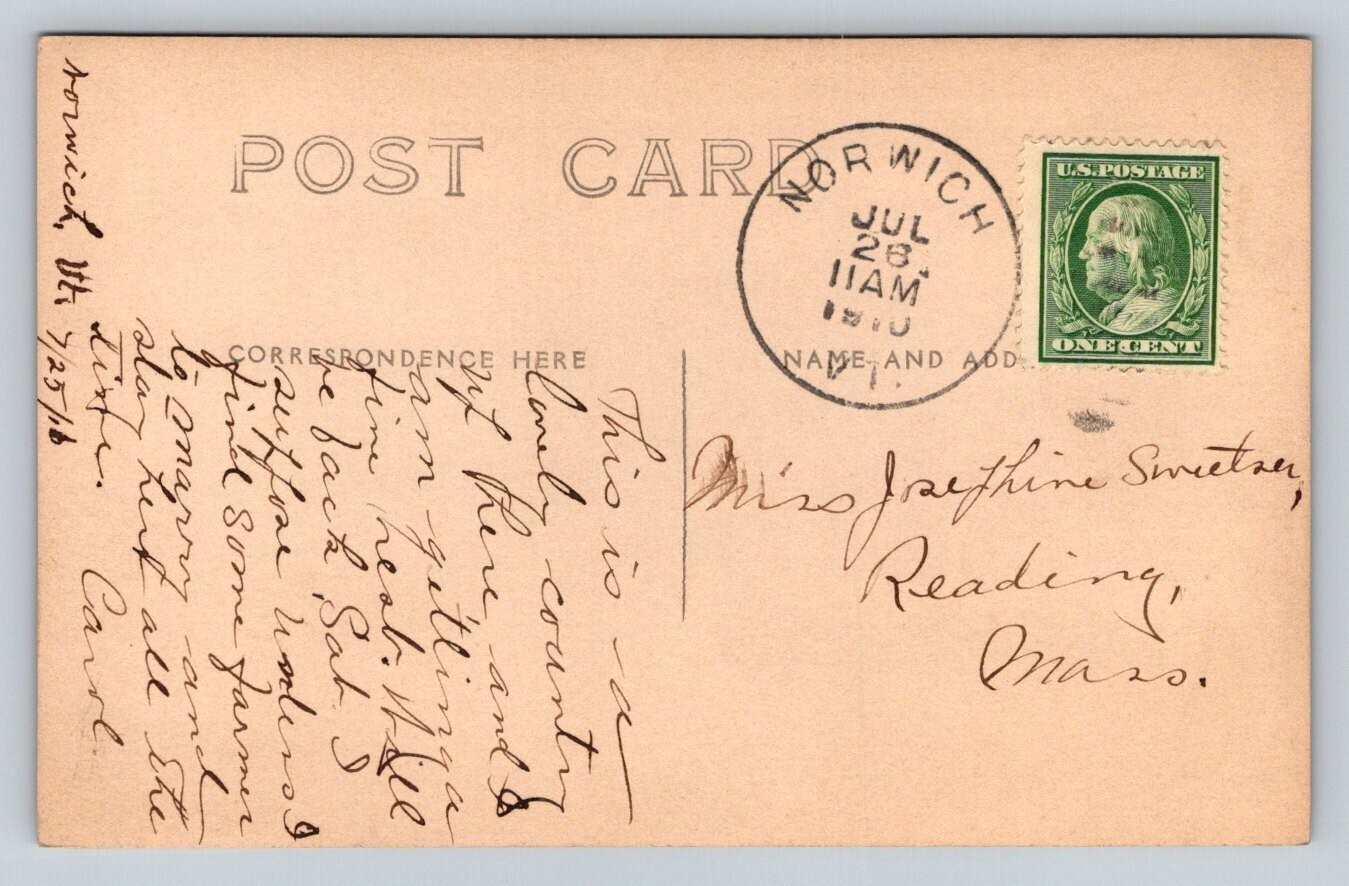 POST CARD
NORWICH
JUL
28
11AM
1910
VT.
U.S.POSTAGE
ONE CENT
CORRESPONDENCE HERE
NAME AND ADD
Norwich, Vt. 7/25/10
This is a
lovely country
up here and I
am getting a
fine rest. Will
be back Sat. I
suppose unless I
find some farmer
to marry and
stay here all the
time.
Carol.
Miss Josephine Sweetser,
Reading,
Mass.